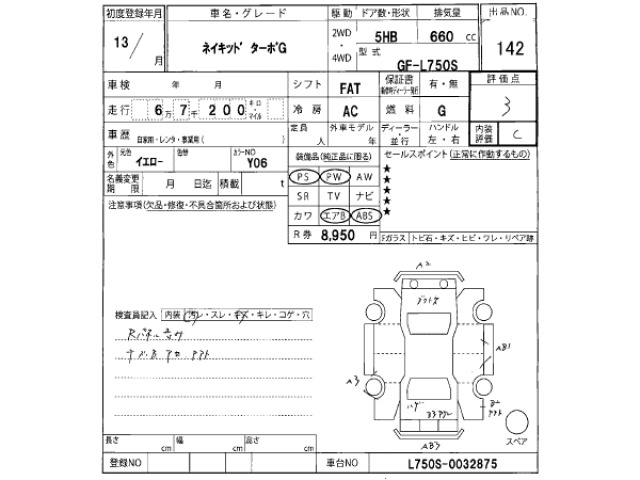 初度登録年月 車名・グレード 駆動 ドア数・形状 排気量 出品NO.
13/ 月 ネイキッド ターボG 2WD・4WD 5HB 660 cc 142
型式 GF-L750S
車検 年 月 シフト FAT 保証書 有・無 評価点 3
走行 6万7千200 キロ・マイル 冷房 AC 燃料 G 内装評価 C
車歴 自家用・レンタ・事業用( ) 定員 人 外車モデル 年 ディーラー・並行 ハンドル 左・右
外色 元色 イエロー 色替 カラーNO Y06 装備品(純正品に限る) セールスポイント(正常に作動するもの)
名義変更期限 月 日迄 積載 t PS PW AW ★
注意事項(欠品・修復・不具合箇所および状態) SR TV ナビ ★
カワ エアB ABS ★
R券 8,950 円 Fガラス トビ石・キズ・ヒビ・ワレ・リペア跡
A2
検査員記入 内装 汚レ・スレ・キズ・キレ・コゲ・穴
AB1
A3
AB3
スペア
長さ cm 幅 cm 高さ cm
登録NO 車台NO L750S-0032875